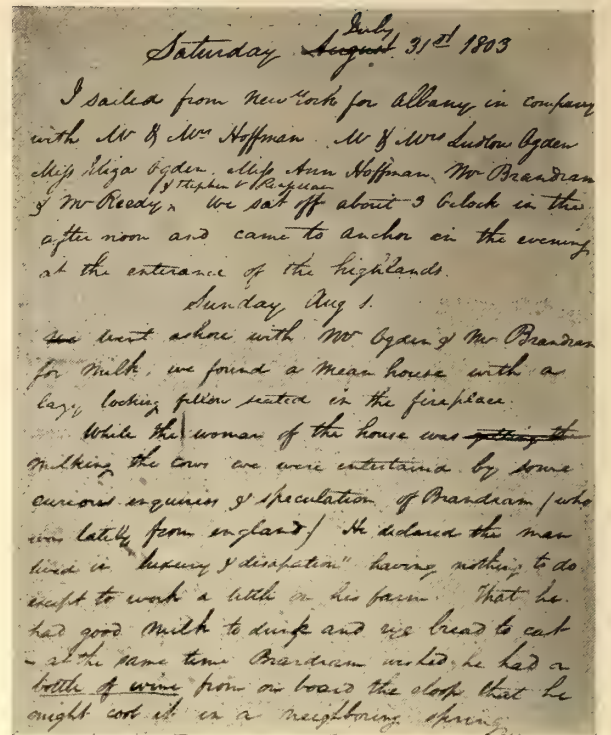 July
Saturday August 31st 1803
I sailed from New York for Albany in company
with Mr & Mrs Hoffman. Mr & Mrs Ludlow Ogden
Miss Eliza Ogden, Miss Ann Hoffman, Mr Brandram
& Stephen V Renselaer
& Mr Reedy, We sat off about 3 Oclock in the
after noon and came to anchor in the evening
at the enterance of the highlands.
Sunday Aug 1.
We went ashore with Mr Ogden & Mr Brandram
for milk, we found a mean house with a
lazy looking fellow seated in the fireplace.
While the woman of the house was getting the
milking the cows we were entertaind by some
curious enquiries & speculation of Brandram (who
was lately from england) He declared the man
lived in "luxury & disapation" having nothing to do
except to work a little on his farm. That he
had good milk to drink and rye bread to eat
- at the same time Brandram wished he had a
bottle of wine from on board the sloop that he
might cool it in a neighboring spring